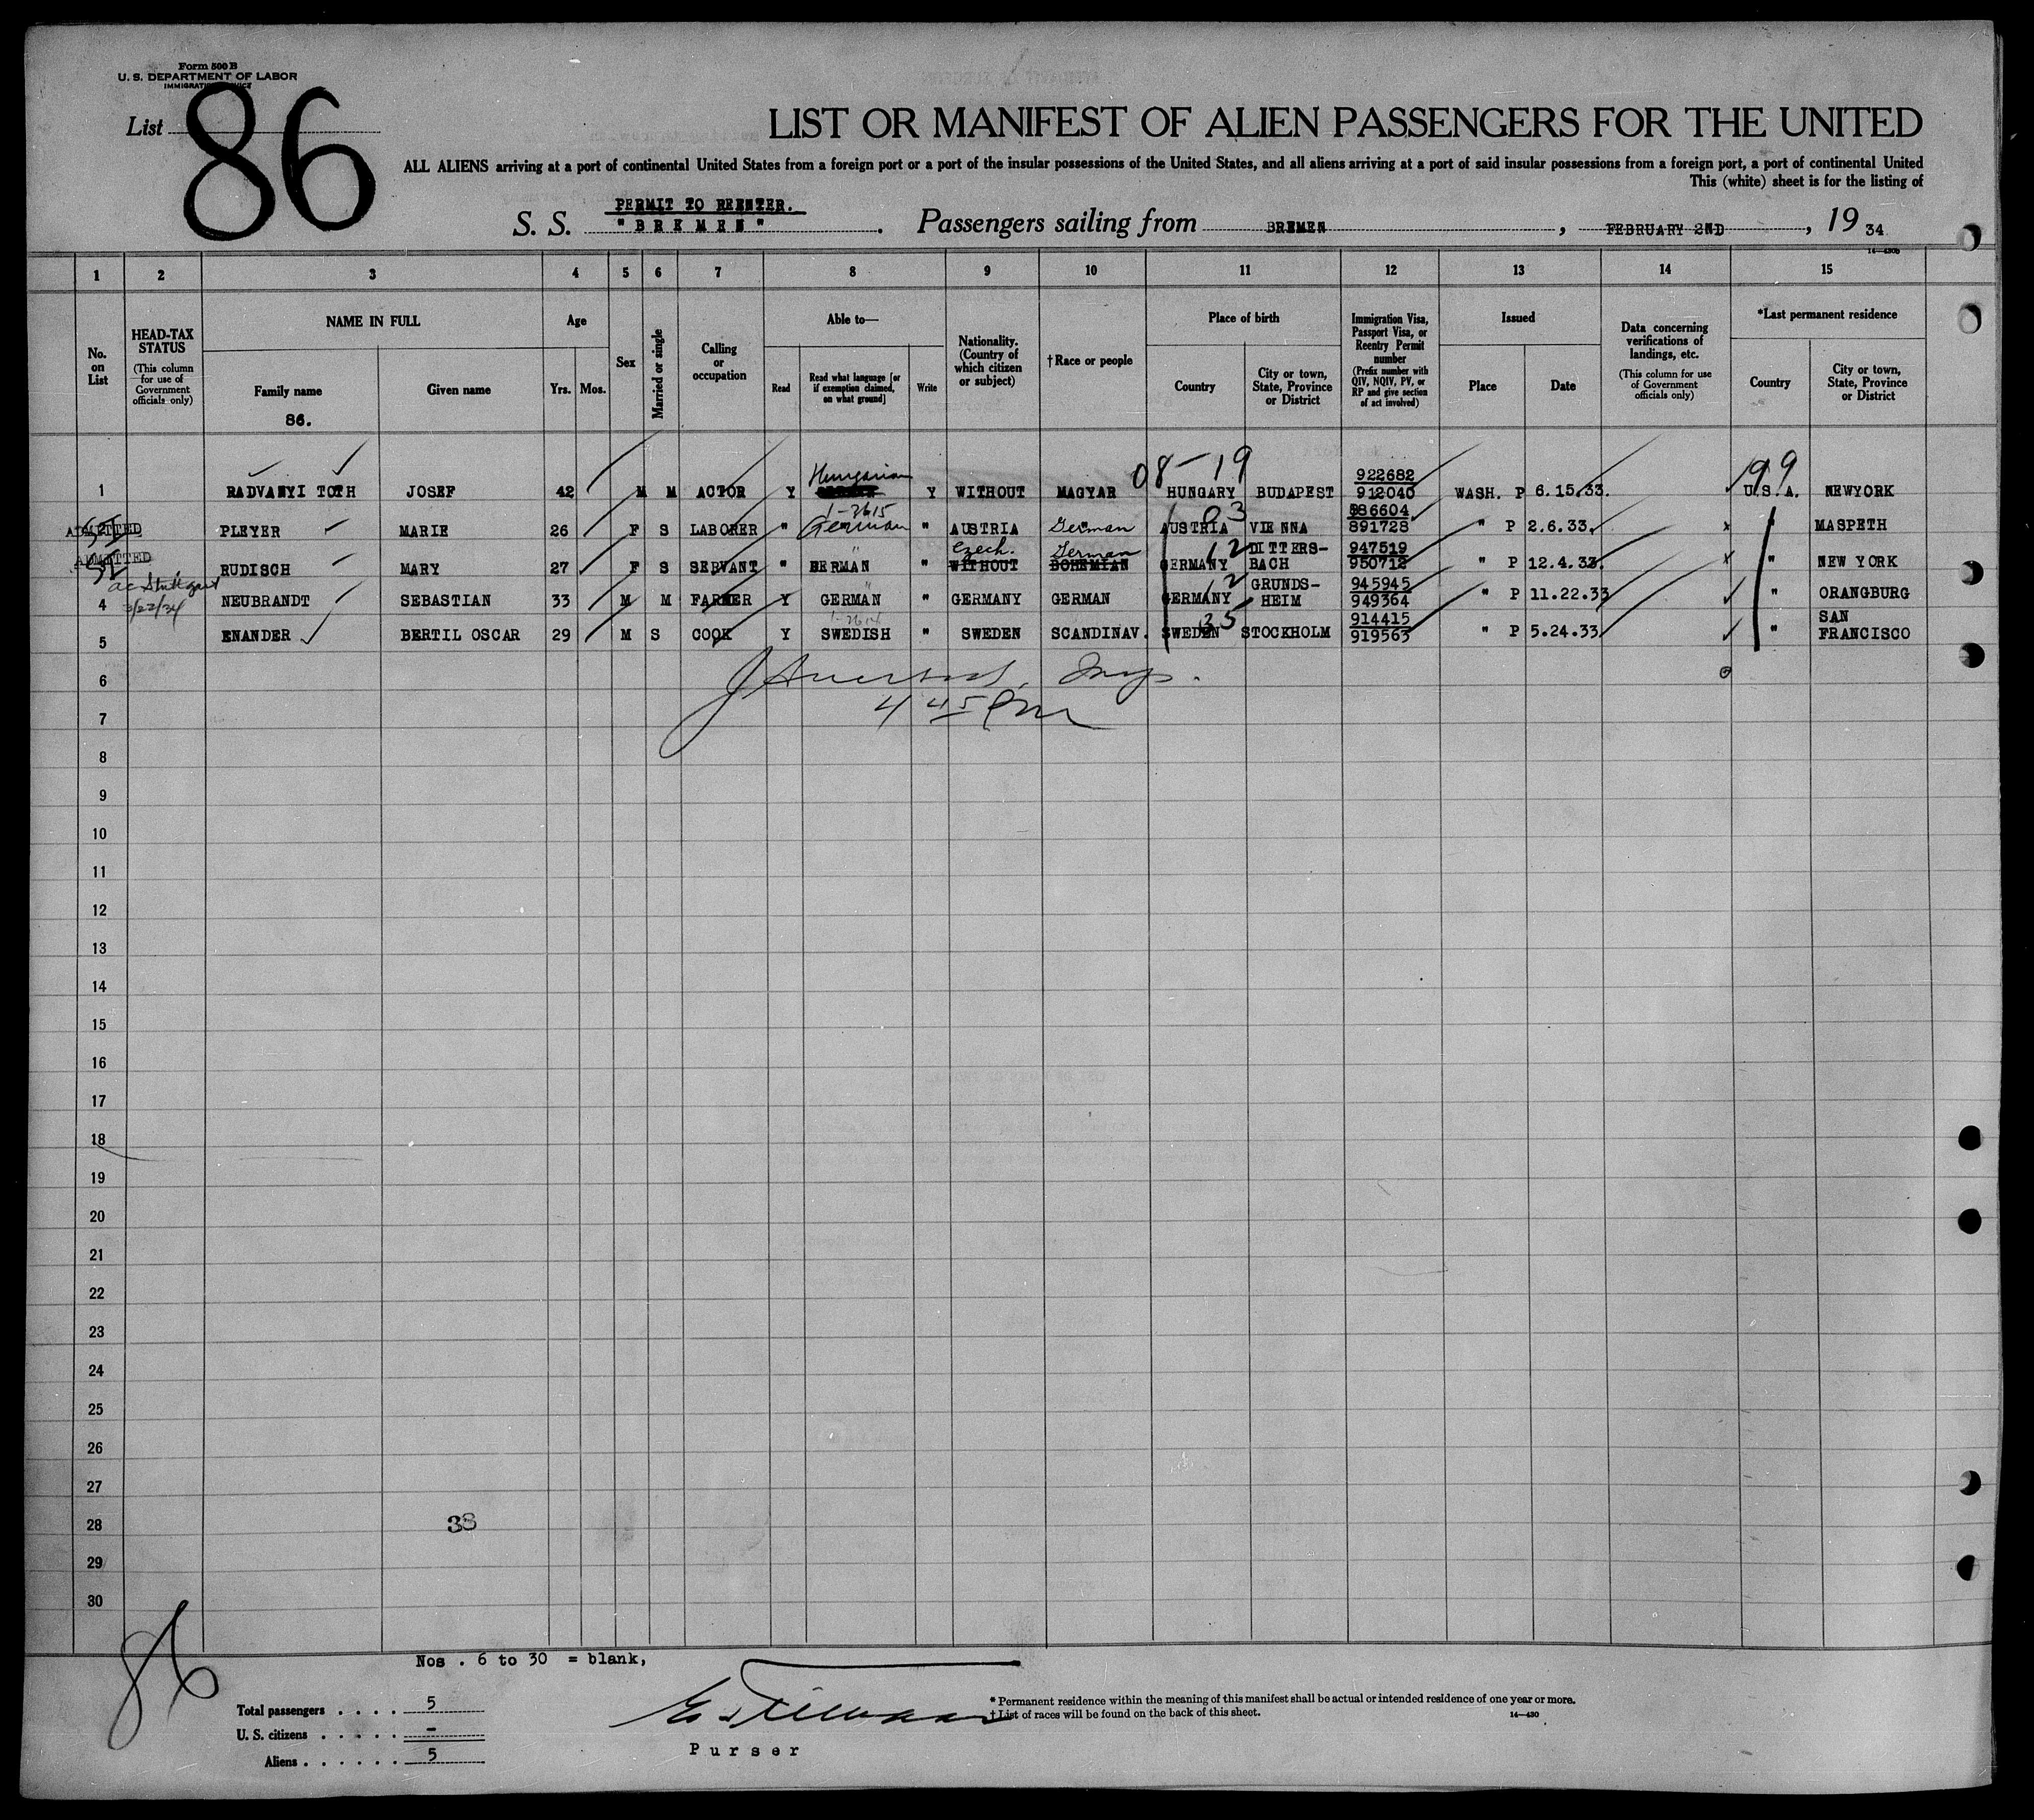 Form 500 B
U. S. DEPARTMENT OF LABOR
List 86
LIST OR MANIFEST OF ALIEN PASSENGERS FOR THE UNITED
ALL ALIENS arriving at a port of continental United States from a foreign port or a port of the insular possessions of the United States, and all aliens arriving at a port of said insular possessions from a foreign port, a port of continental United
This (white) sheet is for the listing of
PERMIT TO REENTER.
S. S. "BREMEN". Passengers sailing from BREMEN, FEBRUARY 2ND, 19 34
1 2 3 4 5 6 7 8 9 10 11 12 13 14 15
No. on List
HEAD-TAX STATUS (This column for use of Government officials only)
NAME IN FULL
Family name
Given name
86.
Age
Yrs. Mos.
Sex
Married or single
Calling or occupation
Able to—
Read
Read what language [or if exemption claimed, on what ground]
Write
Nationality. (Country of which citizen or subject)
†Race or people
Place of birth
Country
City or town, State, Province or District
Immigration Visa, Passport Visa, or Reentry Permit number (Prefix number with QIV, NQIV, PV, or RP and give section of act involved)
Issued
Place
Date
Data concerning verifications of landings, etc. (This column for use of Government officials only)
*Last permanent residence
Country
City or town, State, Province or District
08-19 99
1 RADVANYI TOTH JOSEF 42 M M ACTOR Y Hungarian Y WITHOUT MAGYAR HUNGARY BUDAPEST 922682 912040 WASH. P 6.15.33. U.S.A. NEWYORK
1-2615 03
ADMITTED PLEYER MARIE 26 F S LABORER " German " AUSTRIA German AUSTRIA VIENNA 886604 891728 " P 2.6.33. " MASPETH
Czech. German 12
ADMITTED RUDISCH MARY 27 F S SERVANT " GERMAN " WITHOUT BOHEMIAN GERMANY DITTERS-BACH 947519 950712 " P 12.4.33. " NEW YORK
ac Stuttgart 3/22/34 12
4 NEUBRANDT SEBASTIAN 33 M M FARMER Y GERMAN " GERMANY GERMAN GERMANY GRUNDS-HEIM 945945 949364 " P 11.22.33 " ORANGBURG
35
5 ENANDER BERTIL OSCAR 29 M S COOK Y SWEDISH " SWEDEN SCANDINAV. SWEDEN STOCKHOLM 914415 919563 " P 5.24.33. " SAN FRANCISCO
6
7 4 45 PM
8
9
10
11
12
13
14
15
16
17
18
19
20
21
22
23
24
25
26
27
28 38
29
30
86
Nos. 6 to 30 = blank,
Total passengers . . . . 5
U. S. citizens . . . . . –
Aliens . . . . . . 5
Purser
* Permanent residence within the meaning of this manifest shall be actual or intended residence of one year or more.
† List of races will be found on the back of this sheet.
14—430